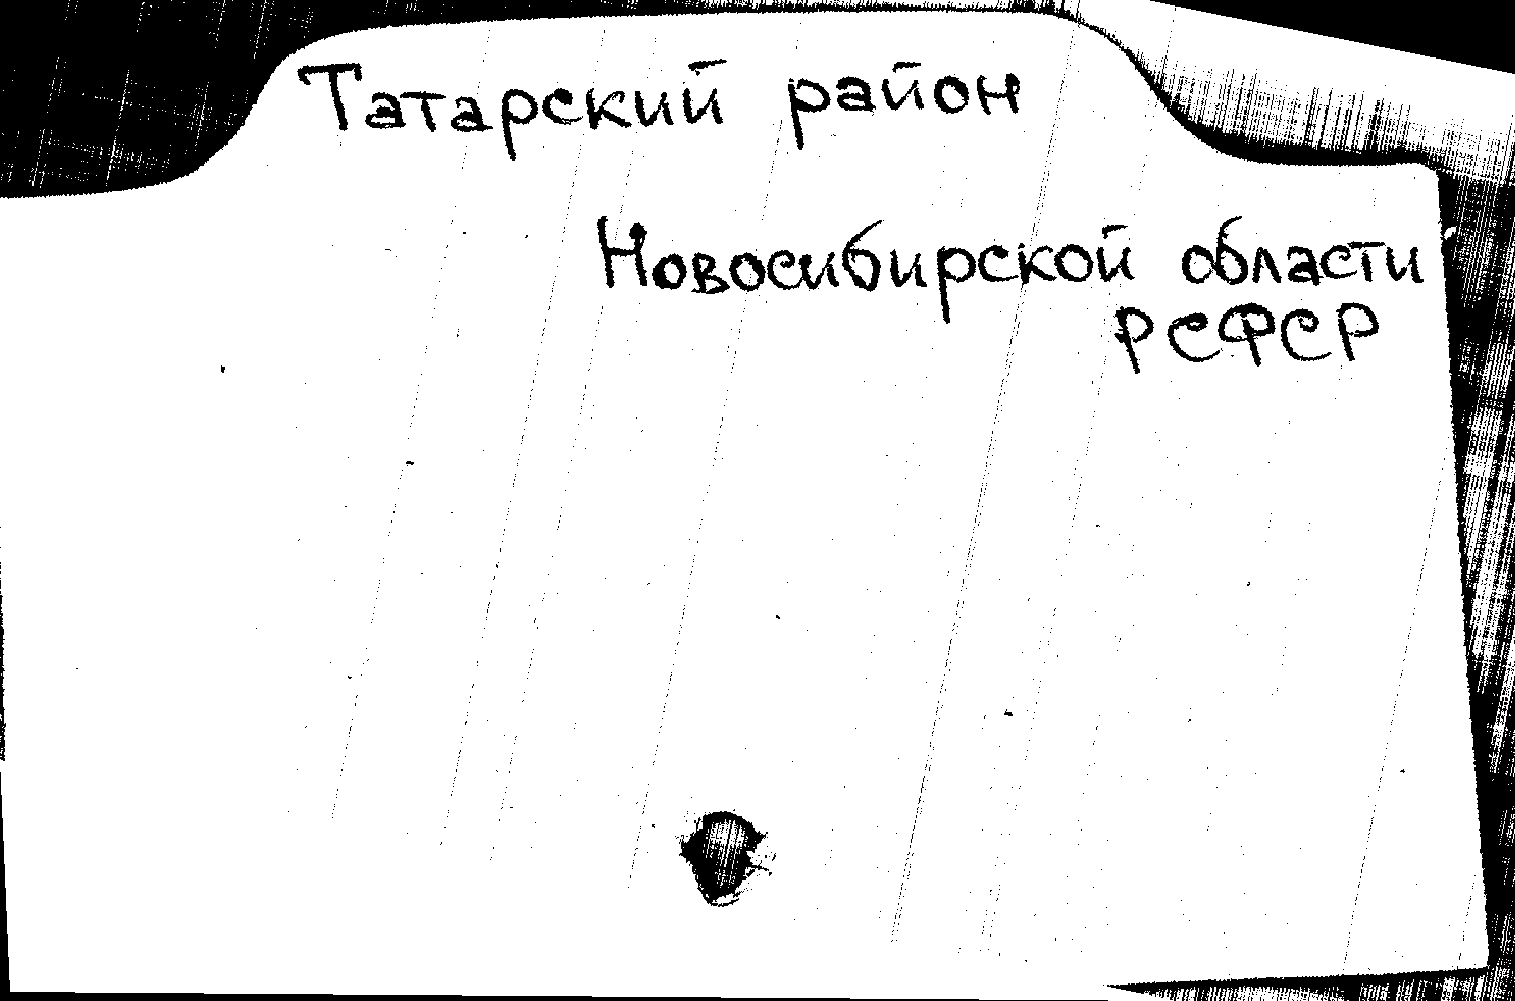 Татарский район
Новосибирской области
РСФСР